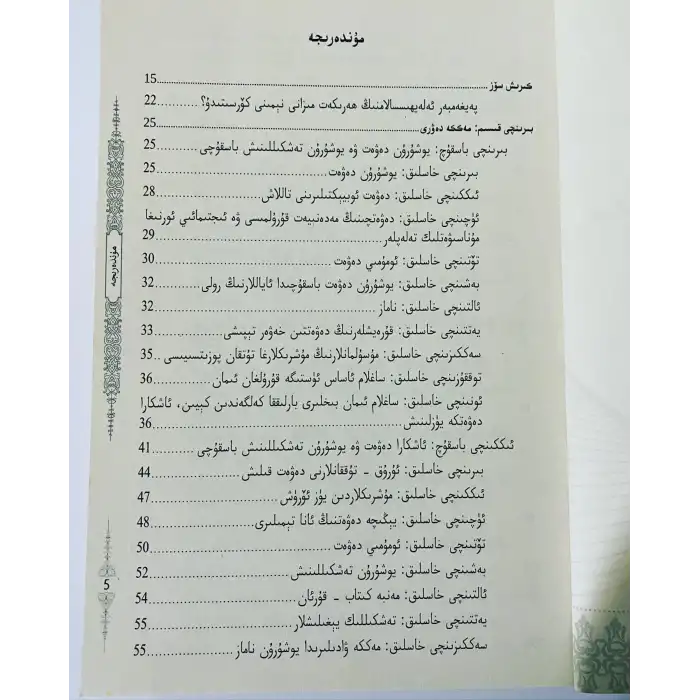 مۇندەرىجە
كىرىش سۆز......15
پەيغەمبەر ئەلەيھىسسالامنىڭ ھەرىكەت مىزانى نېمىنى كۆرسىتىدۇ؟......22
بىرىنچى قىسىم: مەككە دەۋرى......25
بىرىنچى باسقۇچ: يوشۇرۇن دەۋەت ۋە يوشۇرۇن تەشكىللىنىش باسقۇچى......25
بىرىنچى خاسلىق: يوشۇرۇن دەۋەت......25
ئىككىنچى خاسلىق: دەۋەت ئوبيېكتىلىرىنى تاللاش......28
ئۈچىنچى خاسلىق: دەۋەتچىنىڭ مەدەنىيەت قۇرۇلمىسى ۋە ئىجتىمائىي ئورنىغا
مۇناسىۋەتلىك تەلەپلەر......29
تۆتىنچى خاسلىق: ئومۇمىي دەۋەت......30
بەشىنچى خاسلىق: يوشۇرۇن دەۋەت باسقۇچىدا ئاياللارنىڭ رولى......32
ئالتىنچى خاسلىق: ناماز......32
يەتتىنچى خاسلىق: قۇرەيشلەرنىڭ دەۋەتتىن خەۋەر تېپىشى......33
سەككىزىنچى خاسلىق: مۇسۇلمانلارنىڭ مۇشرىكلارغا تۇتقان پوزىتسىيىسى..35
توققۇزىنچى خاسلىق: ساغلام ئاساس ئۈستىگە قۇرۇلغان ئىمان......36
ئونىنچى خاسلىق: ساغلام ئىمان بىخلىرى بارلىققا كەلگەندىن كېيىن، ئاشكارا
دەۋەتكە يۈزلىنىش......36
ئىككىنچى باسقۇچ: ئاشكارا دەۋەت ۋە يوشۇرۇن تەشكىللىنىش باسقۇچى......41
بىرىنچى خاسلىق: ئۇرۇق - تۇققانلارنى دەۋەت قىلىش......44
ئىككىنچى خاسلىق: مۇشرىكلاردىن يۈز ئۆرۈش......47
ئۈچىنچى خاسلىق: يېڭىچە دەۋەتنىڭ ئانا تېمىلىرى......48
تۆتىنچى خاسلىق: ئومۇمىي دەۋەت......50
بەشىنچى خاسلىق: يوشۇرۇن تەشكىللىنىش......52
ئالتىنچى خاسلىق: مەنبە كىتاب - قۇرئان......54
يەتتىنچى خاسلىق: تەشكىللىك يىغىلىشلار......55
سەككىزىنچى خاسلىق: مەككە ۋادىلىرىدا يوشۇرۇن ناماز......55
مۇندەرىجە
5